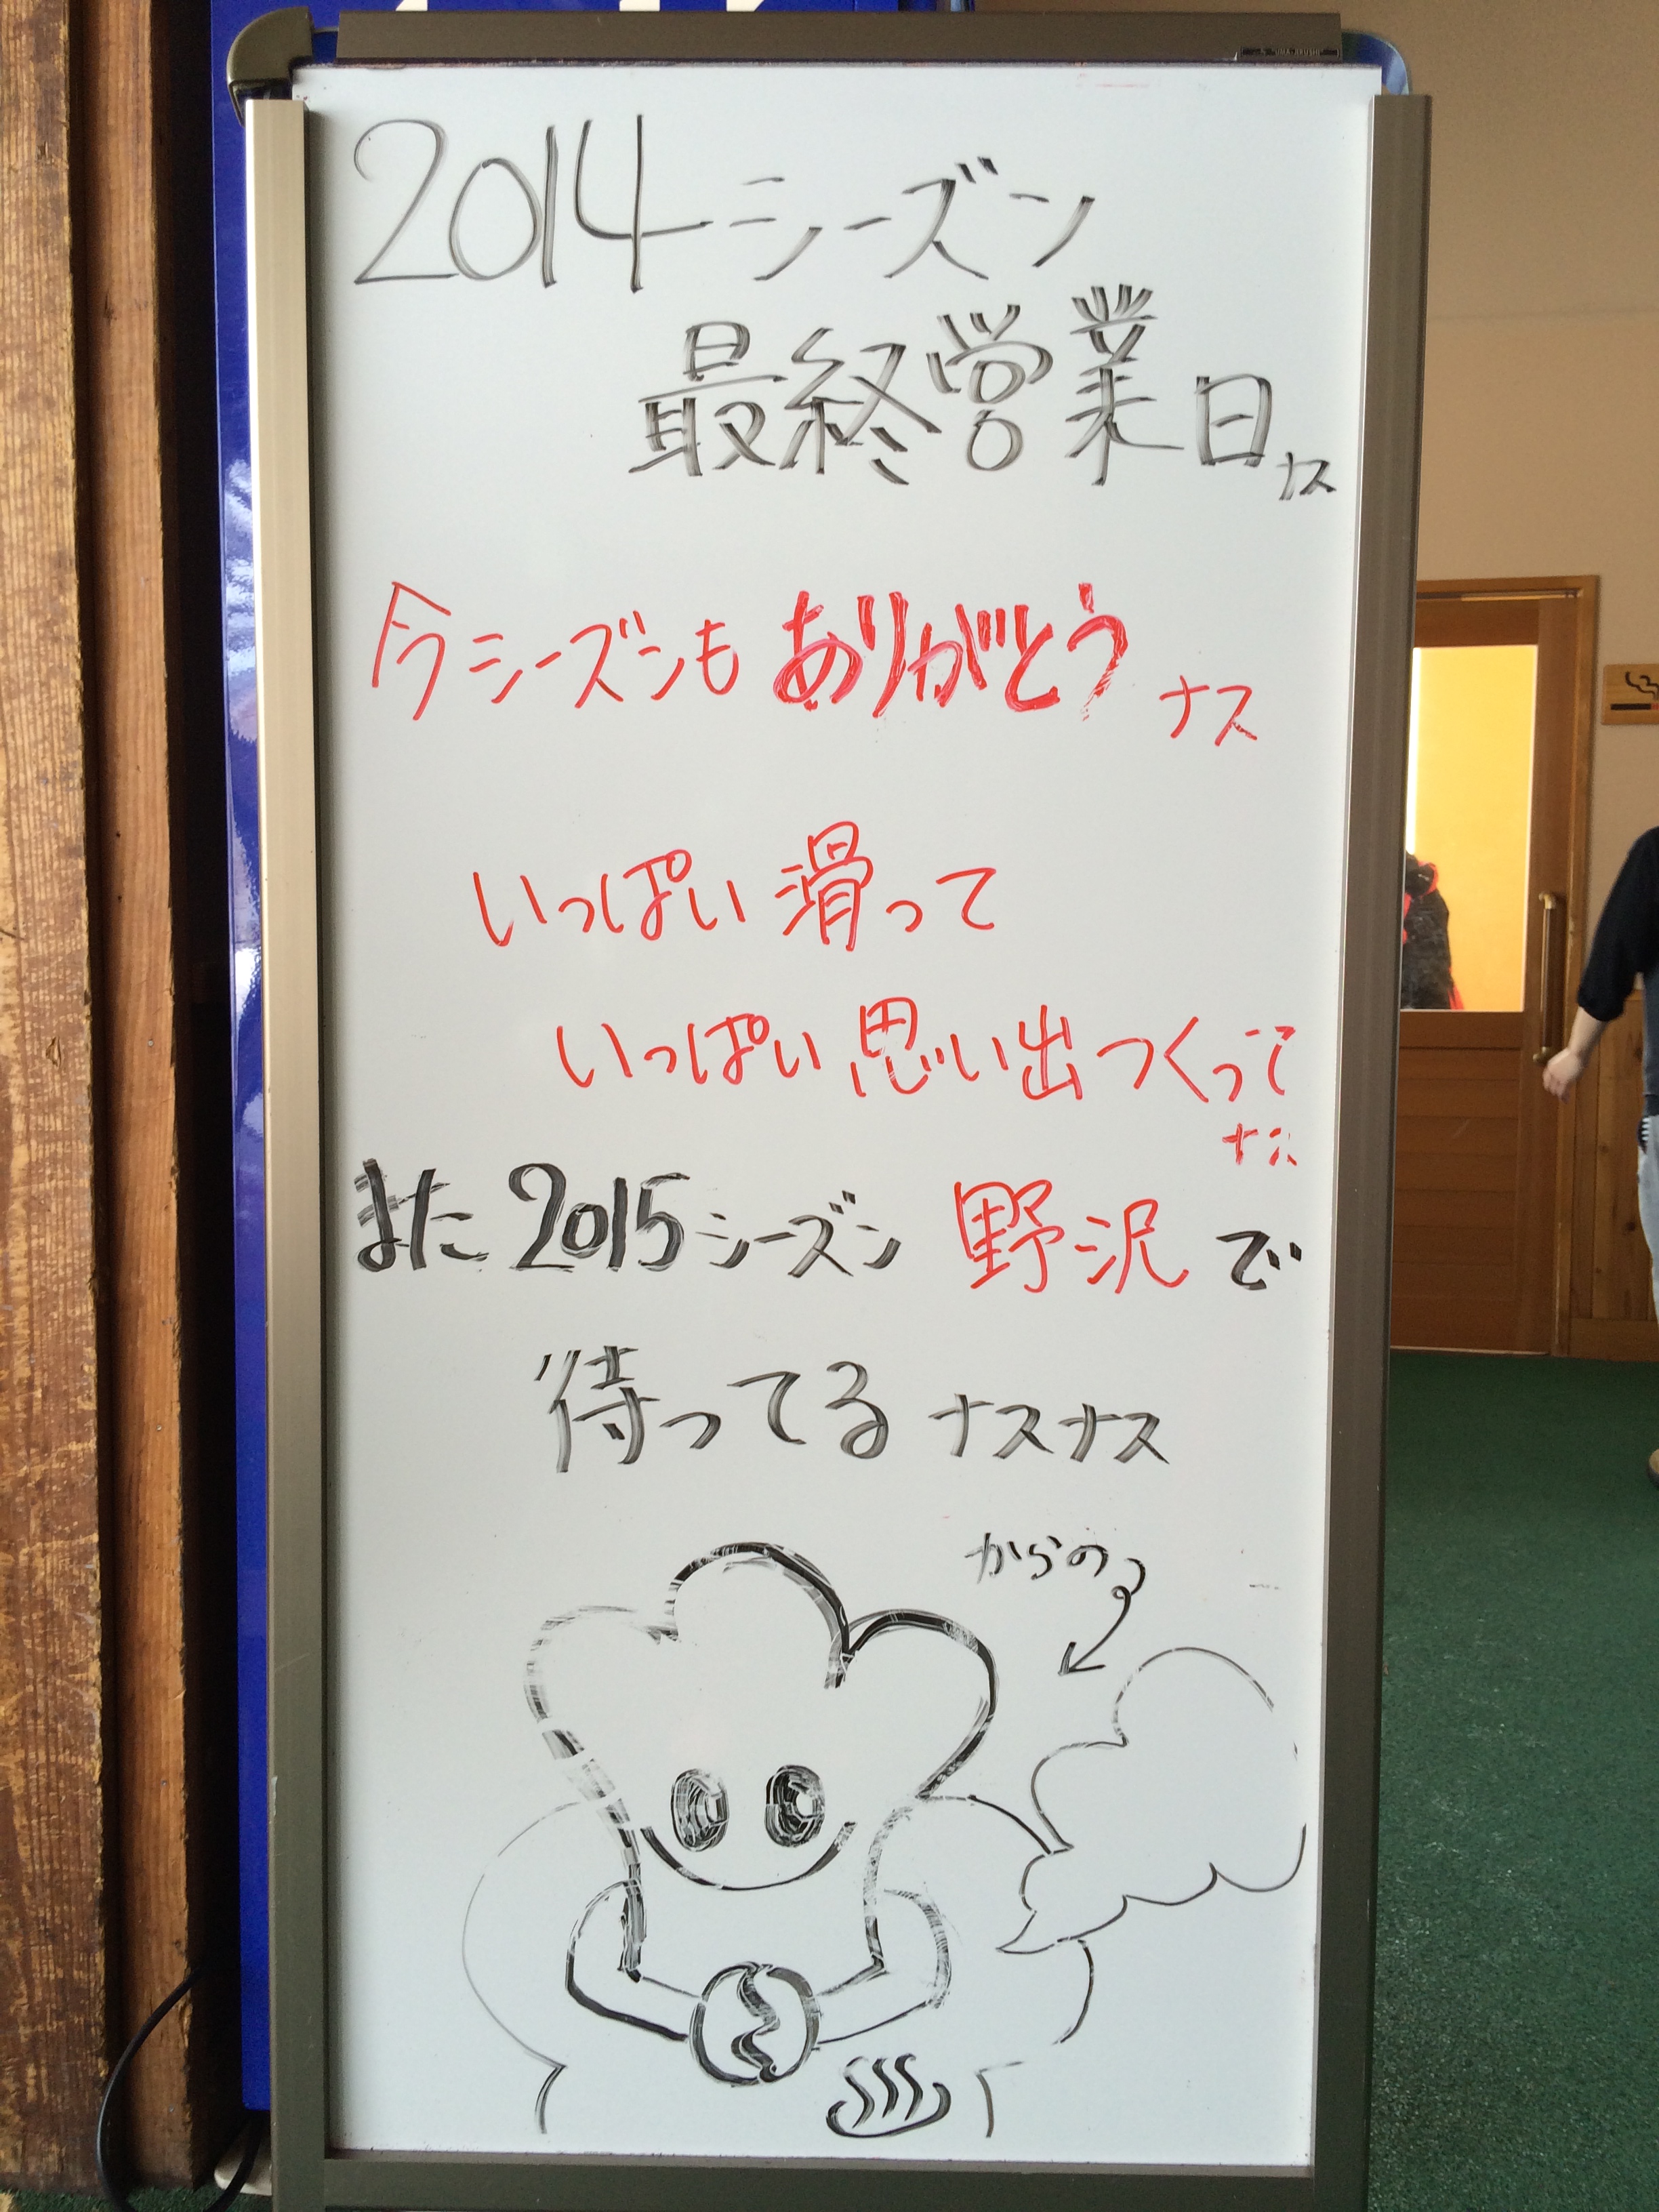 2014シーズン
最終営業日ナス
今シーズンもありがとうナス
いっぱい滑って
いっぱい思い出つくって
ナス
また2015シーズン野沢で
待ってるナスナス
からの